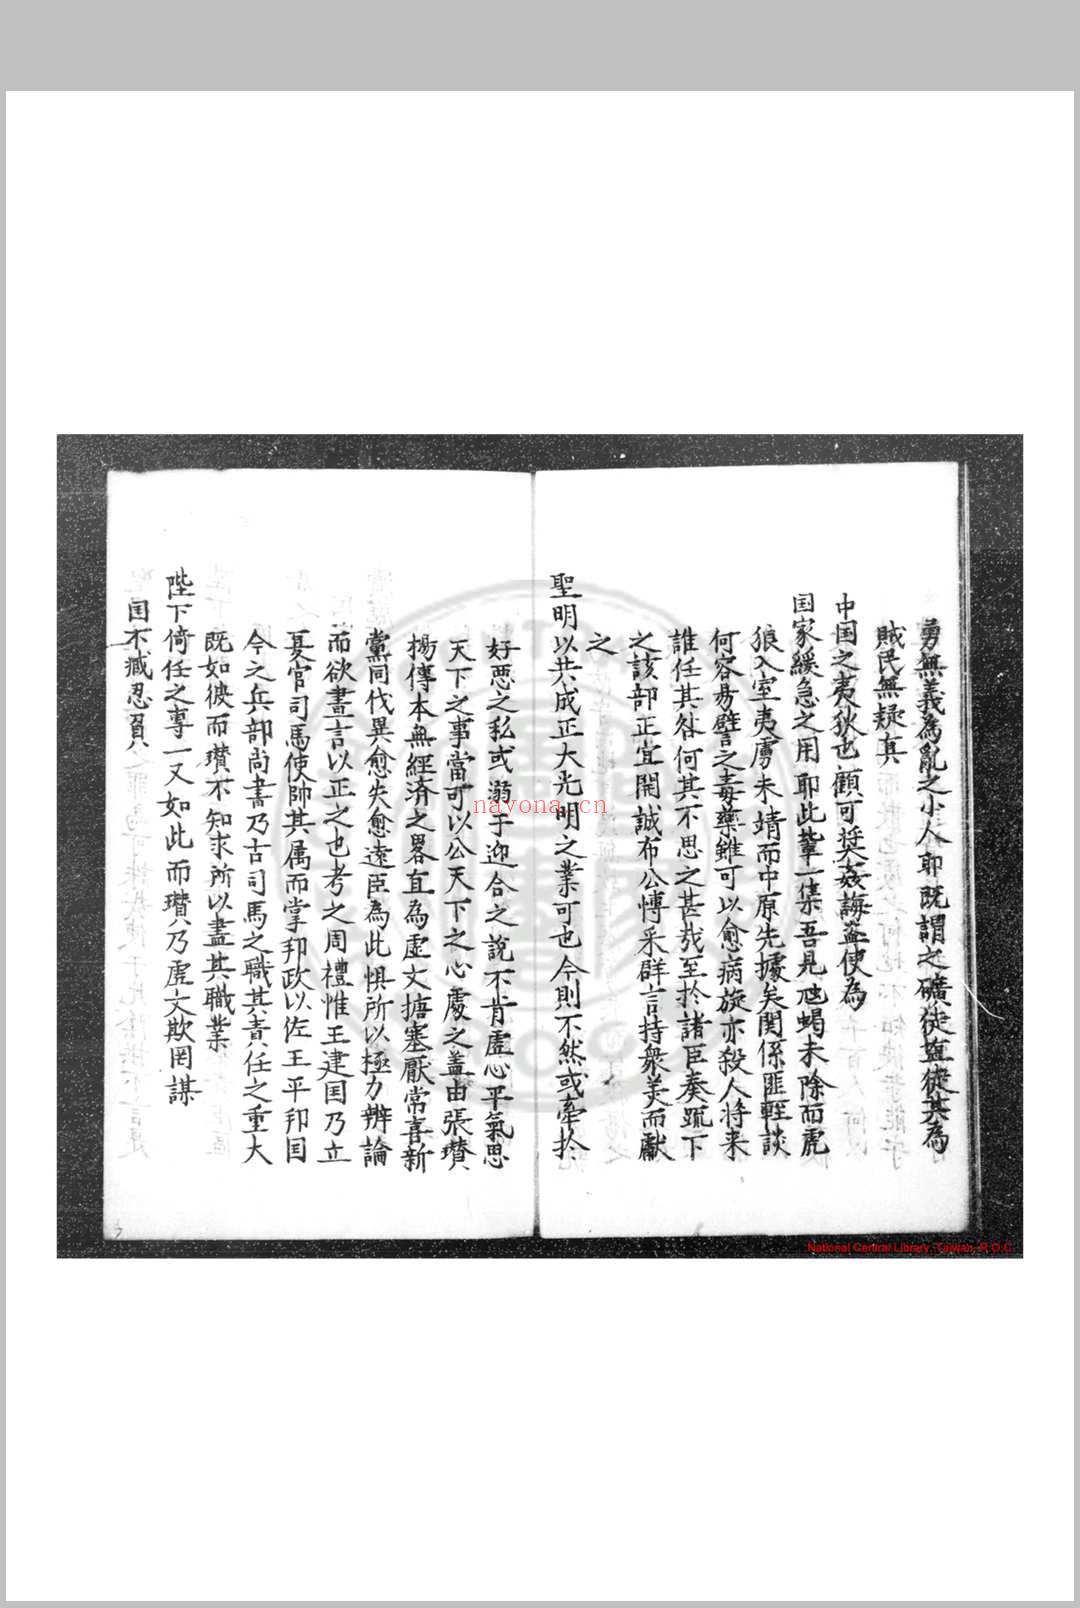 勇無義為亂之小人耶既謂之礦徒盜徒其為
賊民無疑真
中国之夷狄也顧可奨姦誨盜使為
国家緩急之用耶此輩一集吾見虺蝎未除而虎
狼入室夷虜未靖而中原先據矣関係匪輊談
何容昜譬之毒藥雖可以愈病旋亦殺人将来
誰任其咎何其不思之甚哉至扵諸臣奏疏下
之該部正宜開誠布公慱采群言持衆美而獻
之
聖明以共成正大光明之業可也今則不然或牽扵
好惡之私或溺于迎合之說不肯虚心平氣思
天下之事當可以公天下之心處之盖由張瓉
揚傳本無經済之畧直為虚文搪塞厭常喜新
黨同伐異愈失愈遠臣為此惧所以極力辨論
而欲晝言以正之也考之周禮惟王建国乃立
夏官司馬使帥其属而掌邦政以佐王平邦国
今之兵部尚書乃古司馬之職其責任之重大
既如彼而瓉不知求所以盡其職業
陛下倚任之專一又如此而瓉乃虚文欺罔謀
国不臧忍負
nayona.cn
National Central Library, Taiwan, R.O.C